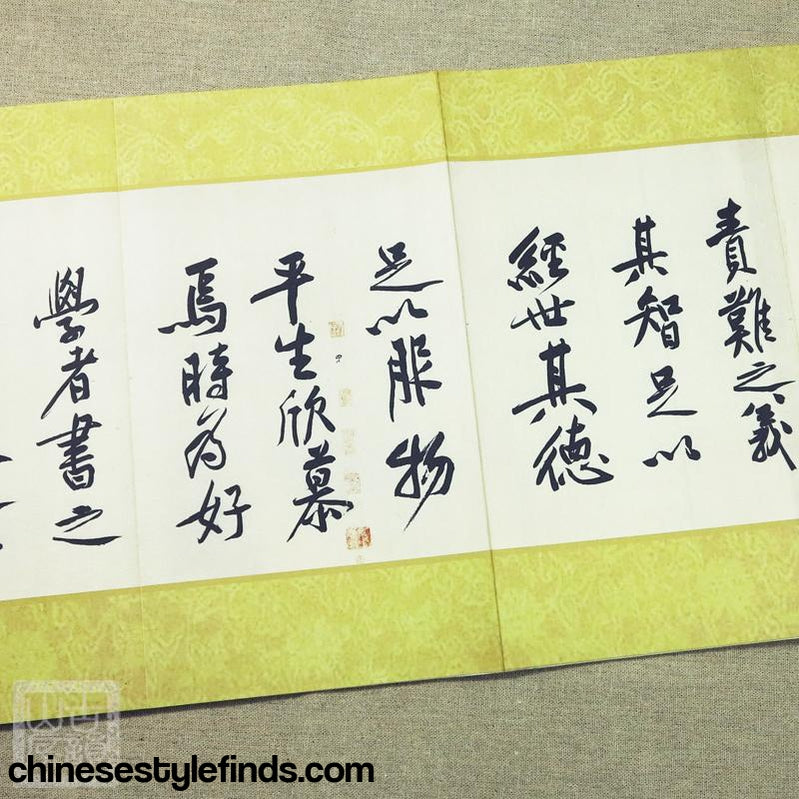 責難之義
其智足以
經世其德
足以服物
平生欣慕
焉時為好
學者書之
chinesestylefinds.com